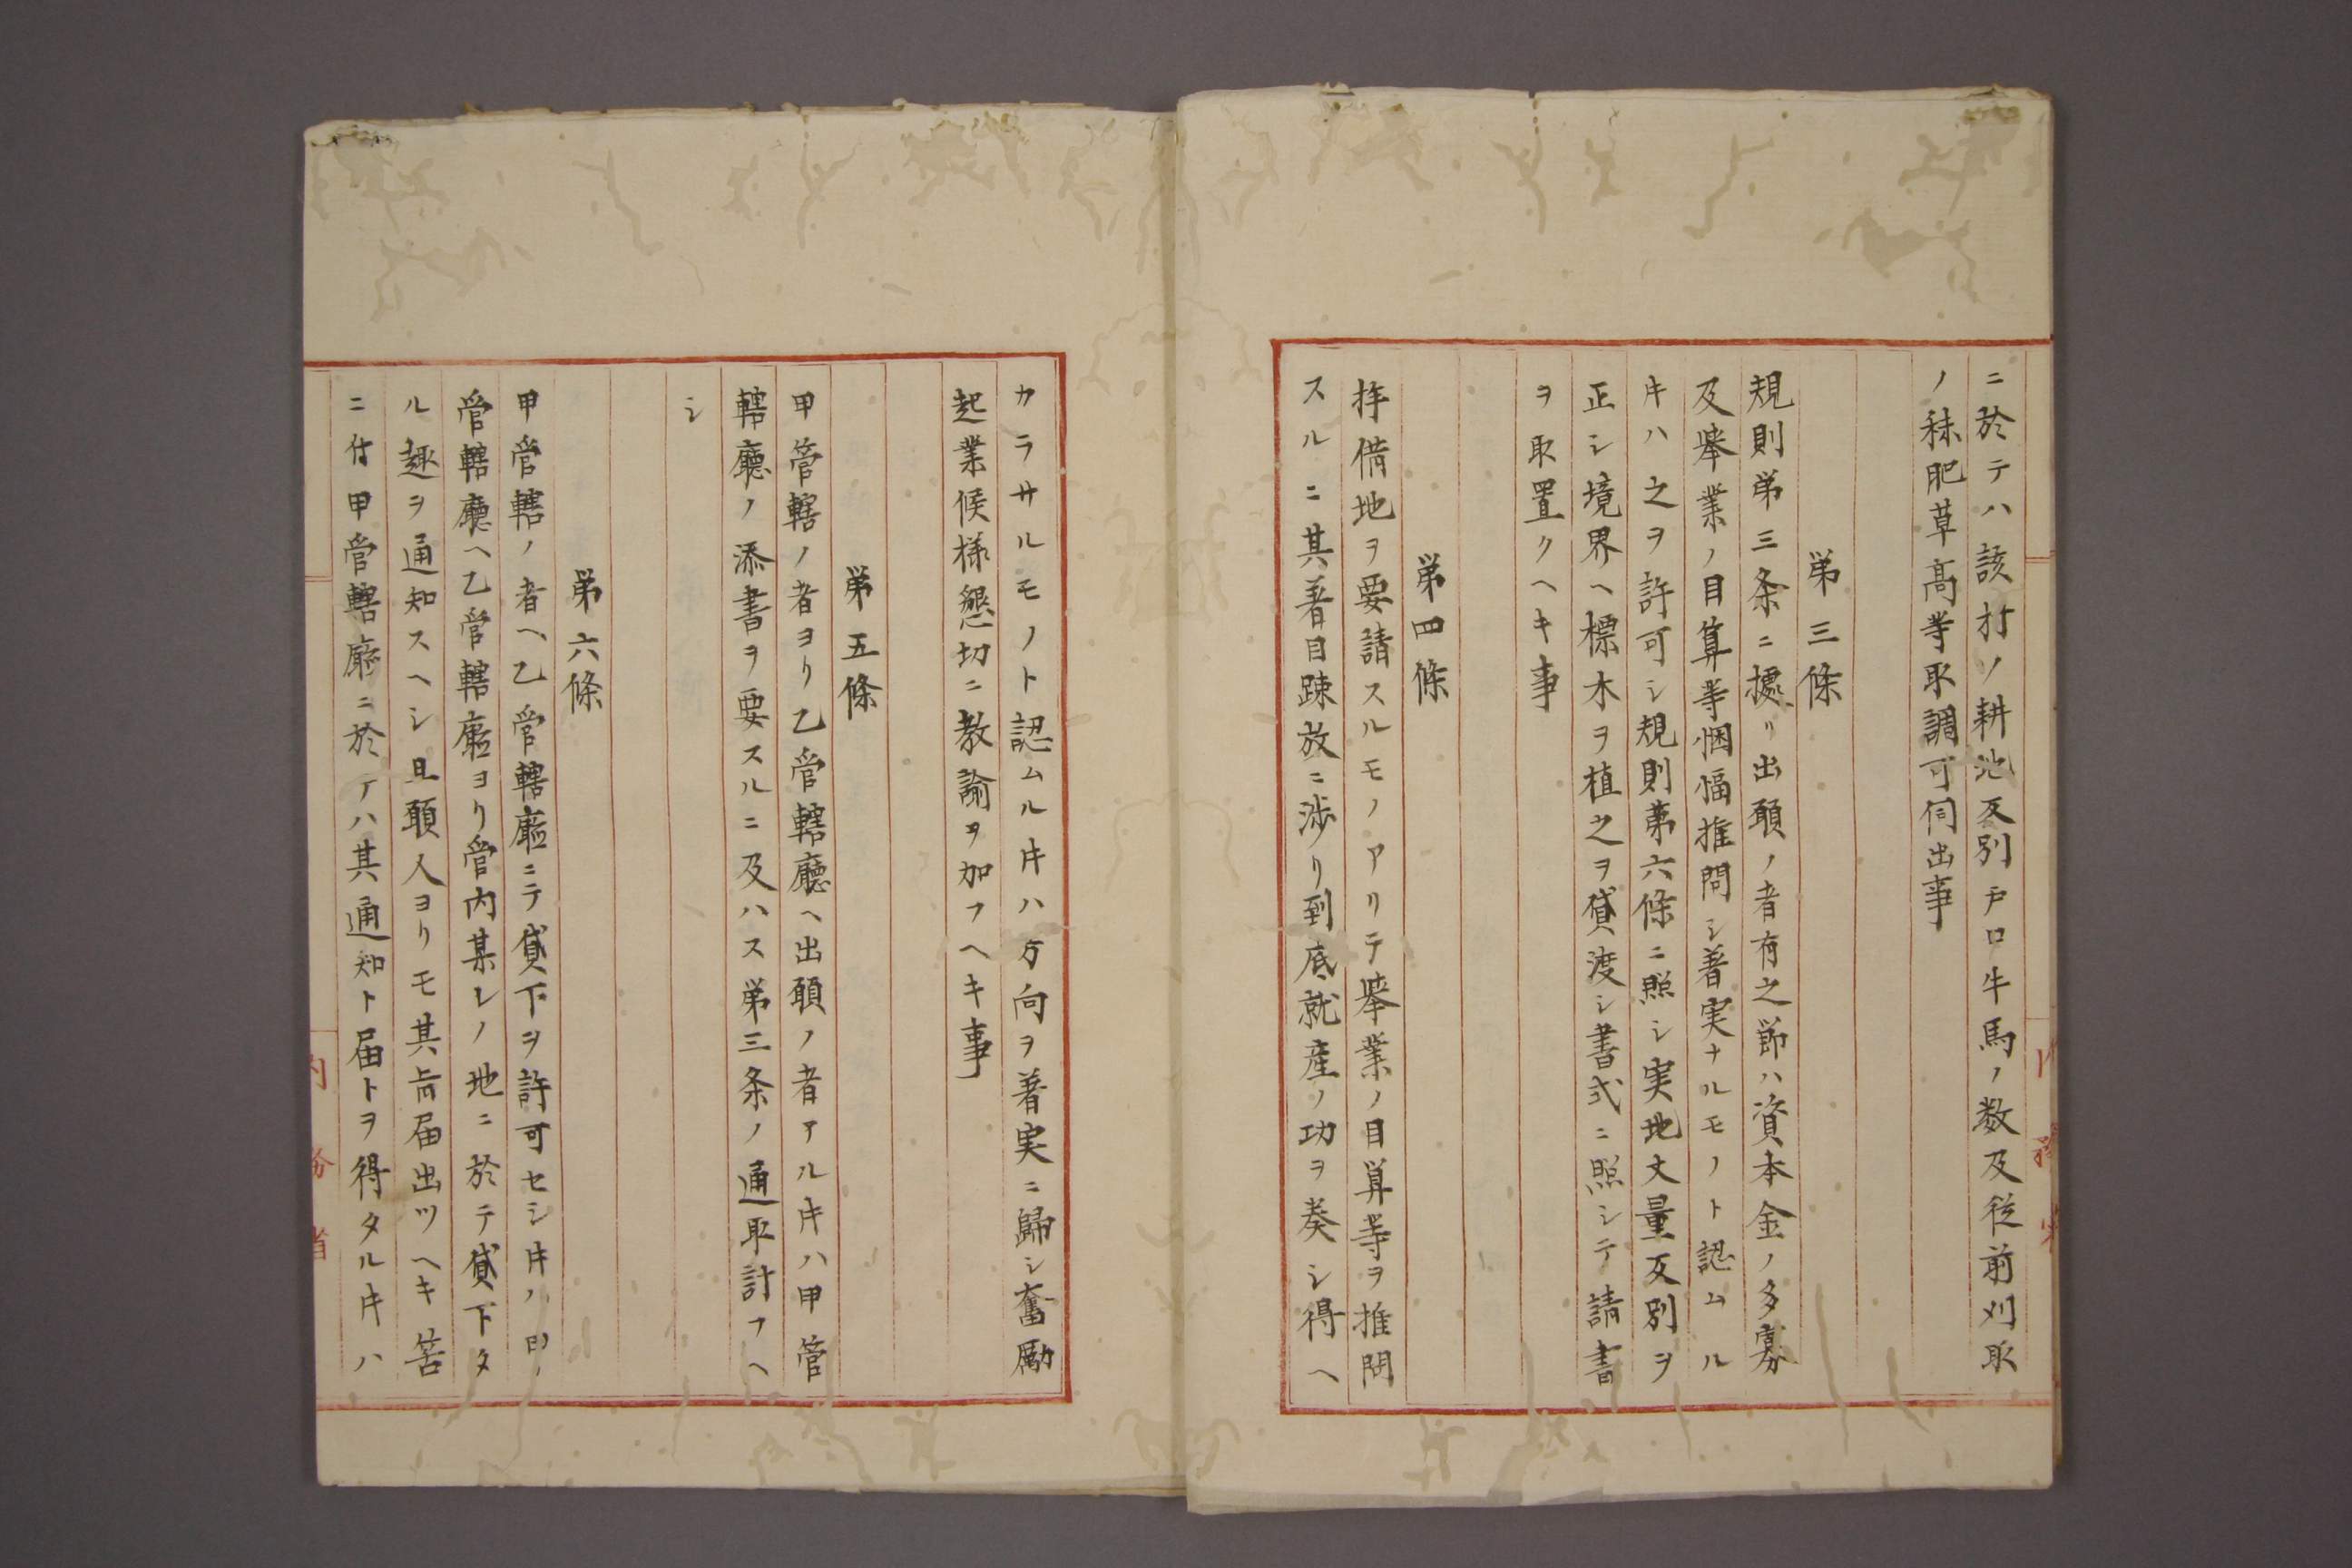 ニ於テハ該村ノ耕地反別戸口牛馬ノ数及従前刈取
ノ秣肥草高等取調可伺出事
第三條
規則第三条ニ據リ出願ノ者有之節ハ資本金ノ多寡
及擧業ノ目算等悃愊推問シ着実ナルモノト認ムル
𪜈ハ之ヲ許可シ規則第六條ニ照シ実地丈量反別ヲ
正シ境界ヘ標木ヲ植之ヲ貸渡シ書式ニ照シテ請書
ヲ取置クヘキ事
第四條
拝借地ヲ要請スルモノアリテ擧業ノ目算等ヲ推問
スルニ其着目疎放ニ渉リ到底就産ノ功ヲ奏シ得ヘ
カラサルモノト認ムル𪜈ハ方向ヲ着実ニ歸シ奮励
起業候様懇切ニ教諭ヲ加フヘキ事
第五條
甲管轄ノ者ヨリ乙管轄廳ヘ出願ノ者アル𪜈ハ甲管
轄廳ノ添書ヲ要スルニ及ハス第三条ノ通取計フヘ
シ
第六條
甲管轄ノ者ヘ乙管轄廳ニテ貸下ヲ許可セシ𪜈ハ甲
管轄廳ヘ乙管轄廳ヨリ管内某レノ地ニ於テ貸下タ
ル趣ヲ通知スヘシ且願人ヨリモ其旨届出ツヘキ筈
ニ付甲管轄廳ニ於テハ其通知ト届トヲ得タル𪜈ハ
内務省